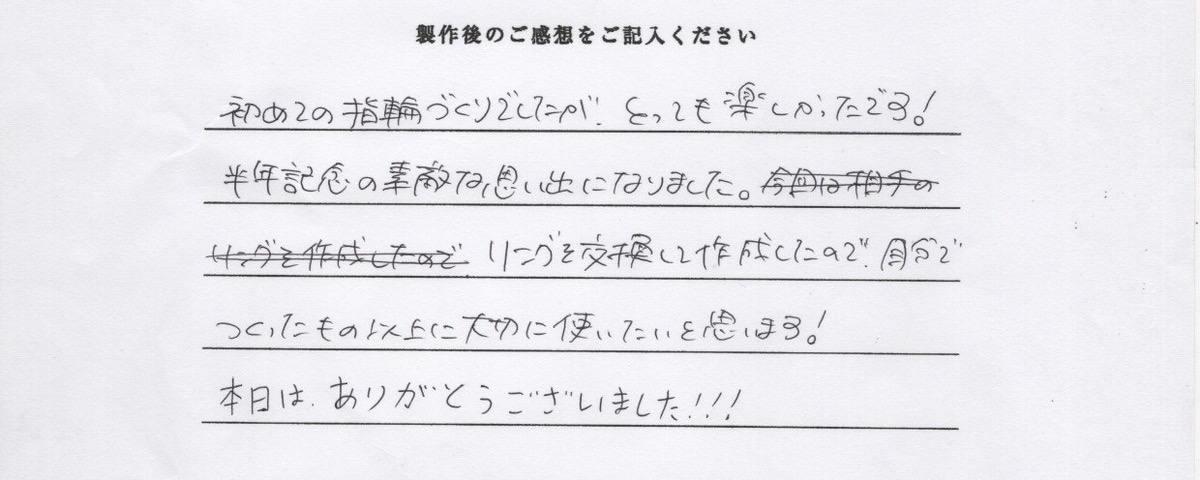 製作後のご感想をご記入ください
初めての指輪づくりでしたが、とっても楽しかったです!
半年記念の素敵な思い出になりました。今回は相手の
リングを作成したので リングを交換して作成したので、自分で
つくったもの以上に大切に使いたいと思います!
本日は、ありがとうございました!!!